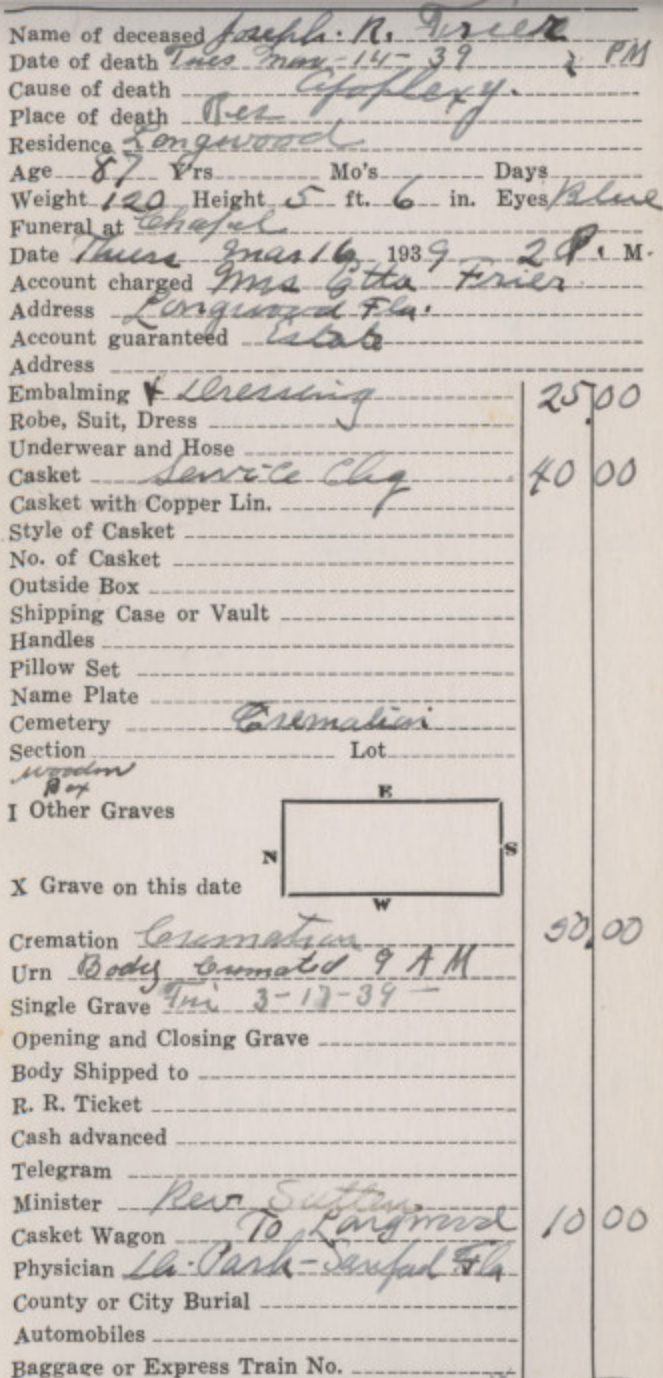 Name of deceased Joseph. R. Frier
Date of death Tues Mar-14-39 2 PM
Cause of death Apoplexy.
Place of death Res
Residence Longwood
Age 87 Yrs Mo's Days
Weight 120 Height 5 ft. 6 in. Eyes Blue
Funeral at Chapel
Date Thurs Mar 16 1939 2 P. M.
Account charged Mrs Etta Frier
Address Longwood Fla.
Account guaranteed Estate
Address
Embalming & Dressing 25.00
Robe, Suit, Dress
Underwear and Hose
Casket Service Chg 40 00
Casket with Copper Lin.
Style of Casket
No. of Casket
Outside Box
Shipping Case or Vault
Handles
Pillow Set
Name Plate
Cemetery Cremation
Section Lot
wooden
Box
E
I Other Graves
N S
X Grave on this date
W
Cremation Cremation 50.00
Urn Body Cremated 9 A M
Single Grave Fri 3-17-39 -
Opening and Closing Grave
Body Shipped to
R. R. Ticket
Cash advanced
Telegram
Minister Rev. Sutten
Casket Wagon To Longwood 10 00
Physician Dr. Park - Sanford Fla
County or City Burial
Automobiles
Baggage or Express Train No.